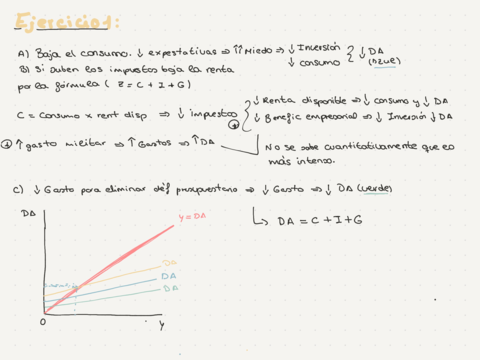 Ejercicio 1:
A) Baja el consumo. ↓ expestativas ⇒ ↑↑ Miedo ⇒ ↓ Inversión
↓ consumo
↓ DA
(Azul)
B) Si suben los impuestos baja la renta
por la fórmula ( Z = C + I + G )
C = Consumo x rent disp ⇒ ↓ impuestos
↓ Renta disponible ⇒ ↓ consumo y ↓ DA
↓ Benefic empresarial ⇒ ↓ Inversión ↓ DA
↑ gasto militar ⇒ ↑ Gastos ⇒ ↑ DA
No se sabe cuantitativamente que es
más intenso.
C) ↓ Gasto para eliminar déf presupuestario ⇒ ↓ Gasto ⇒ ↓ DA (verde)
↳ DA = C + I + G
DA
Y = DA
DA
DA
DA
0
Y